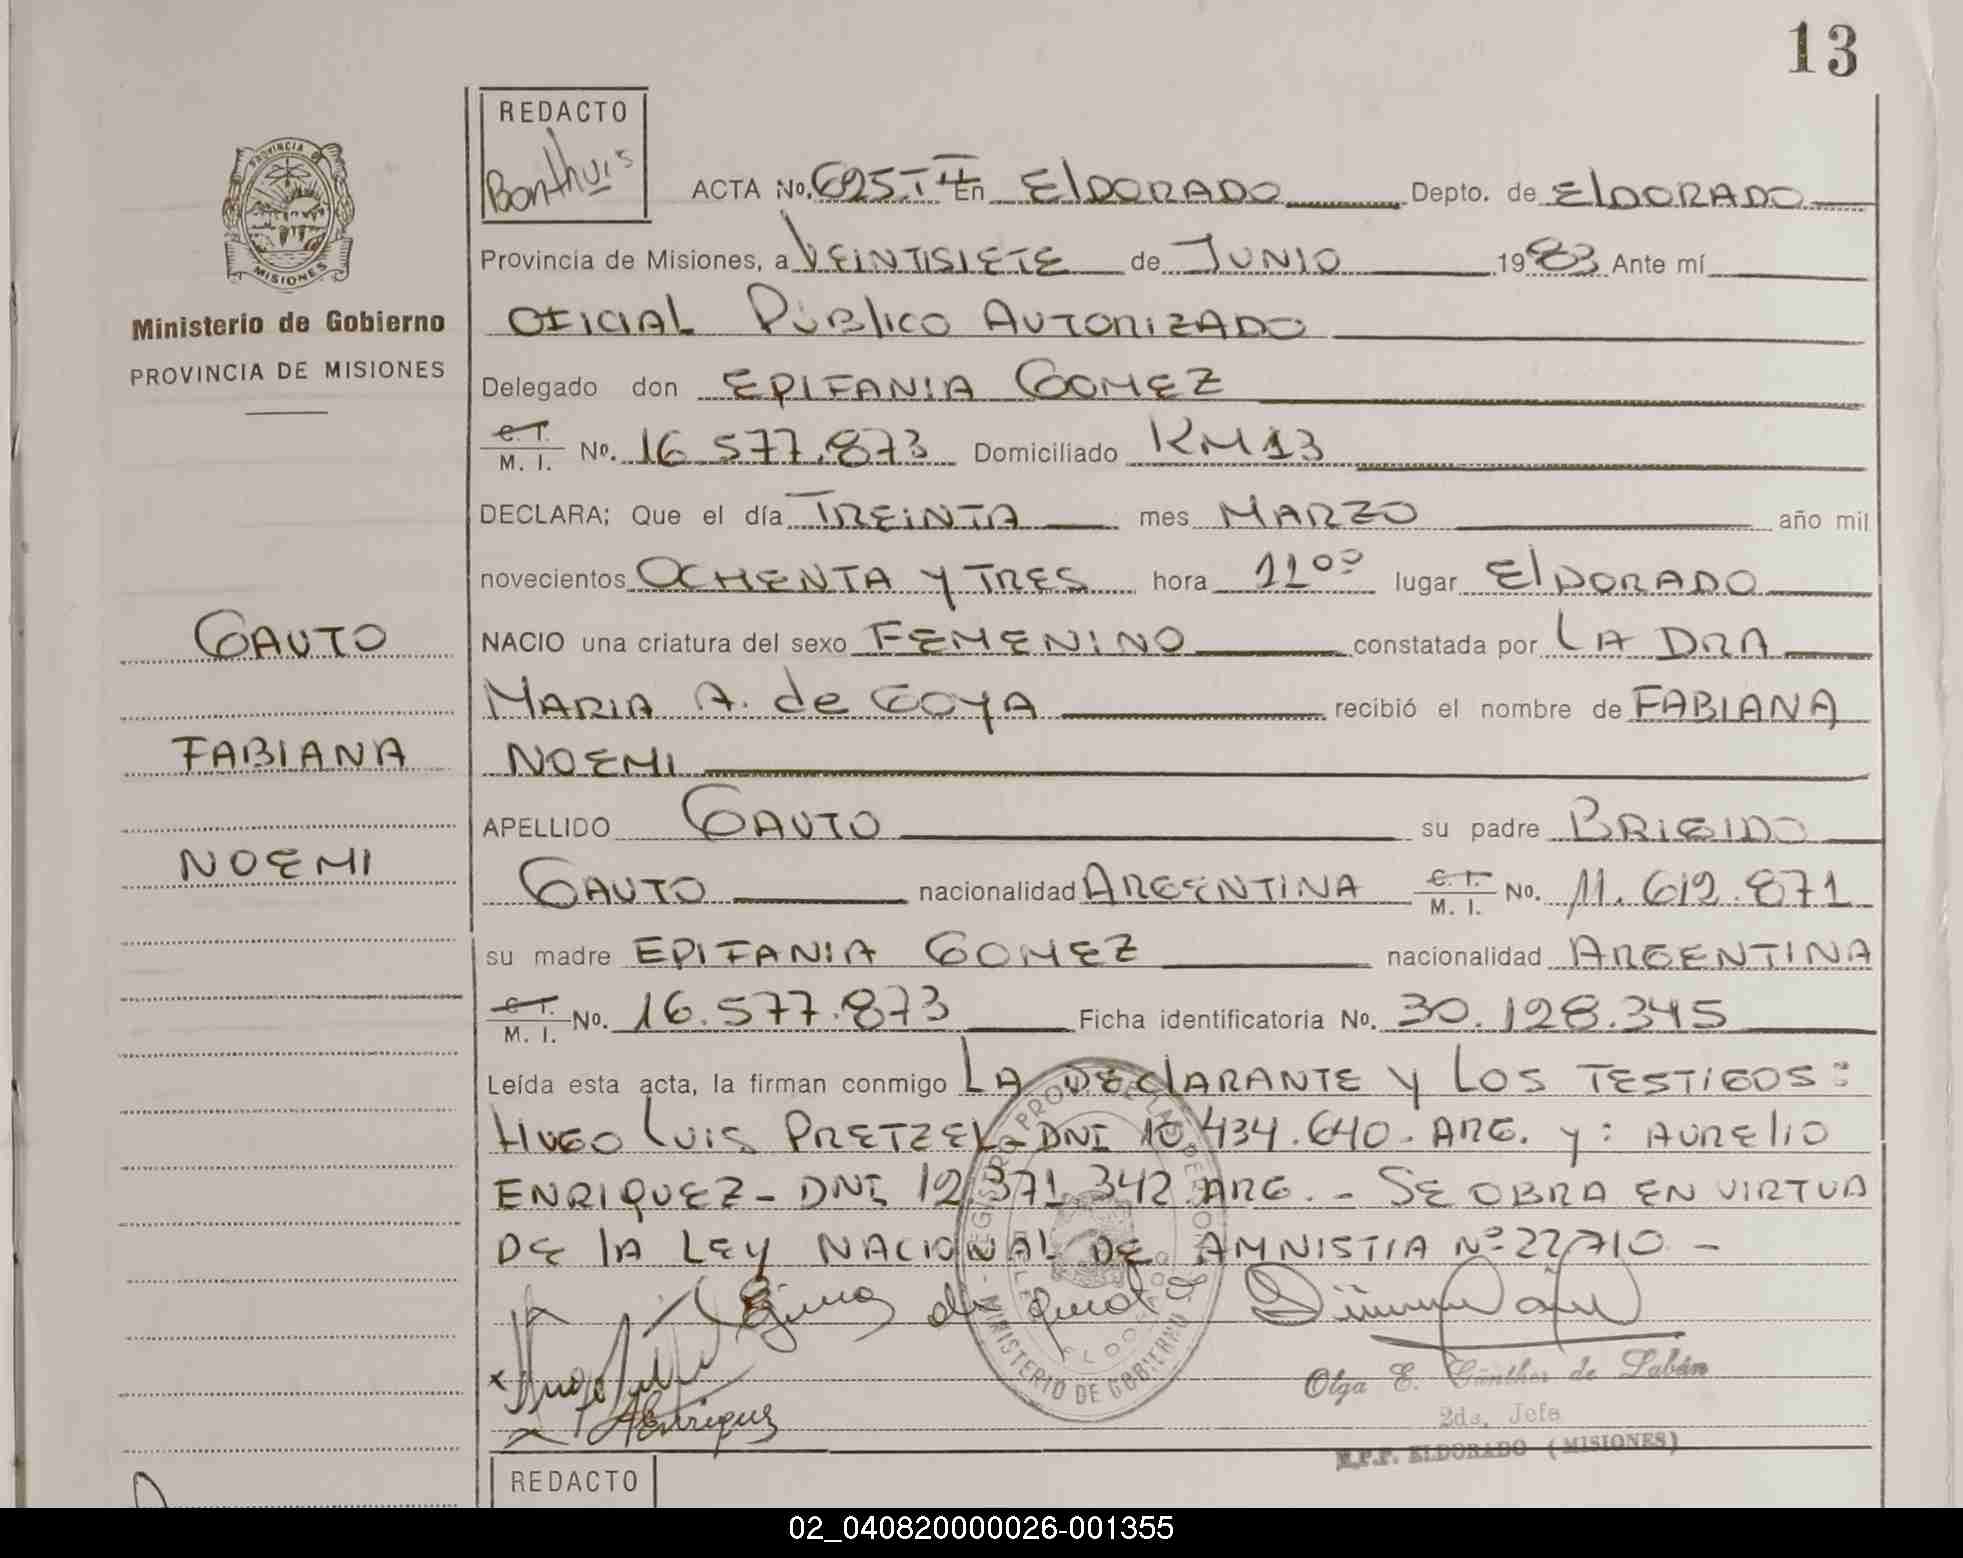 13
REDACTO
Bonthuis
PROVINCIA DE
MISIONES
Ministerio de Gobierno
PROVINCIA DE MISIONES
ACTA No. 695.T4 En ElDORADO Depto. de ElDORADO
Provincia de Misiones, a VEINTISIETE de JUNIO 1983 Ante mí
OFICIAL PúBlico AUTORIZADO
Delegado don EPIFANIA GOMEZ
C. I. M. I. No. 16.577.873 Domiciliado KM 13
DECLARA; Que el día TREINTA mes MARZO año mil
novecientos OCHENTA Y TRES hora 11°° lugar ElDORADO
NACIO una criatura del sexo FEMENINO constatada por LA DRA
MARIA A. de GOYA recibió el nombre de FABIANA
NOEMI
APELLIDO GAUTO su padre BRIGIDO
GAUTO nacionalidad ARGENTINA C. I. M. I. No. 11.612.871
su madre EPIFANIA GOMEZ nacionalidad ARGENTINA
C. I. M. I. No. 16.577.873 Ficha identificatoria No. 30.128.345
Leída esta acta, la firman conmigo LA DEClARANTE Y LOS TESTIGOS:
HUGO LUIS PRETZEL- DNI 10.434.640. ARG. y: AURElIO
ENRIQUEZ- DNI 12.371.342 ARG. - SE OBRA EN VIRTUD
DE lA LEY NACIONAL DE AMNISTIA Nº 22710 -
GAUTO
FABIANA
NOEMI
MINISTERIO DE GOBIERNO
Olga E. Günther de Labán
2da. Jefa
R.P.P. ELDORADO (MISIONES)
REDACTO
02_040820000026-001355